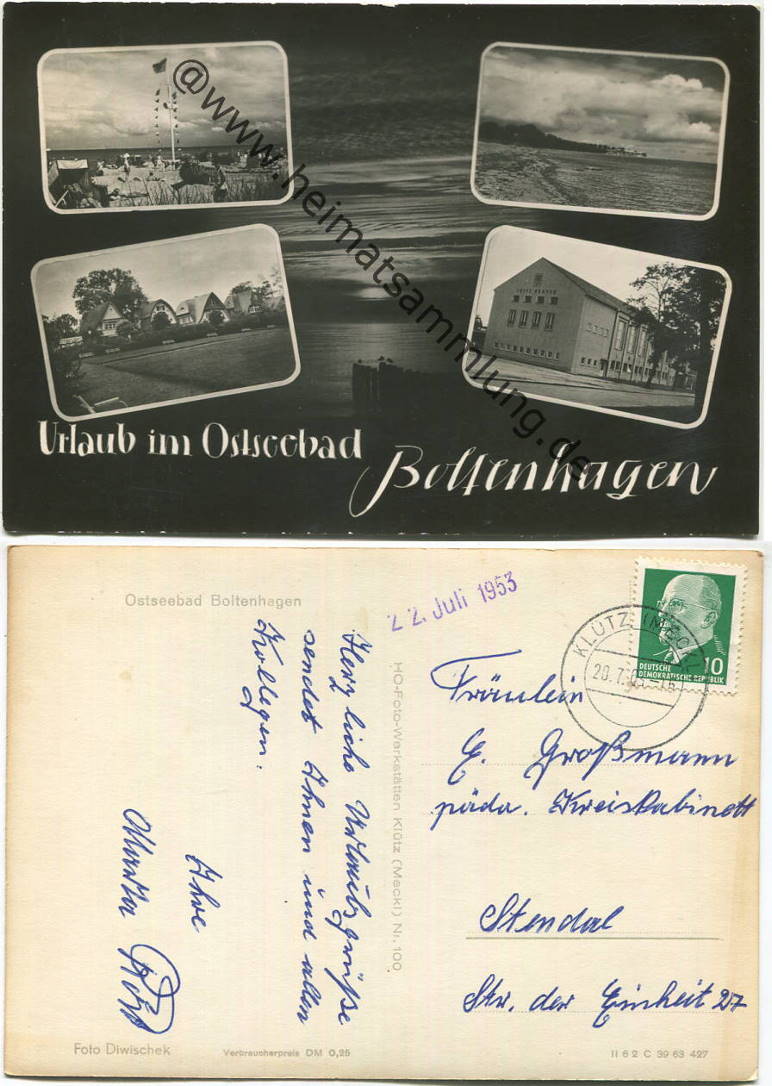 @www.heimatsammlung.de
Urlaub im Ostseebad
Boltenhagen
Ostseebad Boltenhagen
22. Juli 1953
KLÜTZ (MECKL)
DEUTSCHE
DEMOKRATISCHE REPUBLIK
10
Herzliche Urlaubsgrüße
sendet Ihnen und allen
Kollegen.
Ihre
HO-Foto-Werkstätten Klütz (Meckl) Nr. 100
Fräulein
E. Großmann
päda. Kreiskabinett
Stendal
Str. der Einheit 27
Foto Diwischek
Verbraucherpreis DM 0,25
II 6 2 C 39 63 427